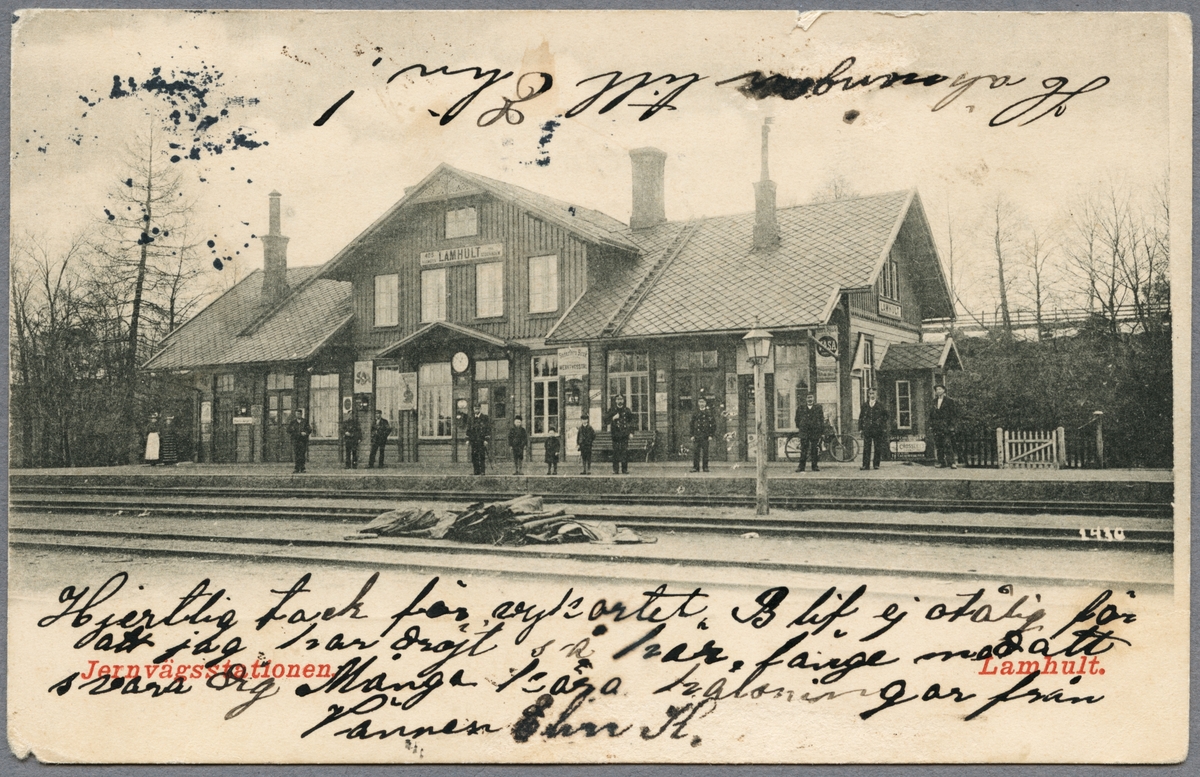 Helsningar till Eder
LAMHULT
LAMHULT
1410
Hjertlig tack för vykortet. Blif ej otålig för
att jag har dröjt så här länge med att
Jernvägsstationen. Lamhult.
svara dig Många kära hälsningar från
Vännen Elin K.